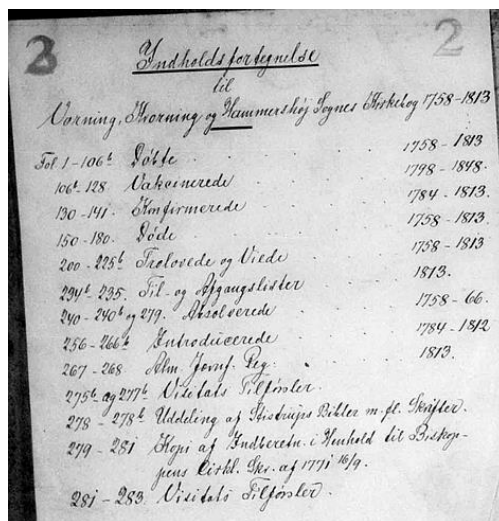 3 2
Indholdsfortegnelse
til
Vorning, Kvorning og Hammershøj Sognes Kirkebog 1758-1813
Fol 1-106b Døbte 1758-1813
106b-128 Vakcinerede 1798-1848.
130-141. Konfirmerede 1784-1813.
150-180. Døde 1758-1813.
200-225b Trolovede og Viede 1758-1813
234b-235. Til- og Afgangslister 1813.
240-240b og 279. Absolverede 1758-66.
256-266b Introducerede 1784-1812
267-268 Alm. Jevnf. Reg. 1813.
275b og 277b Visitats Tilførsler.
278-278b Uddeling af Stistrups Bibler m. fl. Skrifter.
279-281 Kopi af Indberetn. i Henhold til Biskop-
pens Cirkl. Skr. af 1771 16/9.
281-283. Visitats Tilførsler.